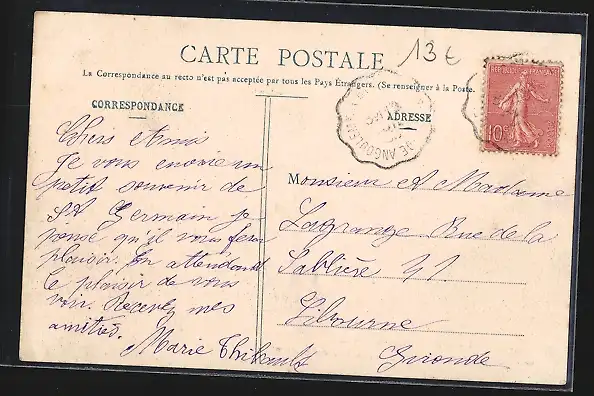 CARTE POSTALE
13 €
La Correspondance au recto n'est pas acceptée par tous les Pays Étrangers. (Se renseigner à la Poste.
CORRESPONDANCE
ADRESSE
RÉPUBLIQUE FRANÇAISE
10c
ANGOULÊME
Chers Amis
Je vous envoie un
petit souvenir de
St Germain je
pense qu'il vous fera
plaisir. En attendant
le plaisir de vous
voir. Recevez mes
amitiés.
Marie Thibault
Monsieur et Madame
Lagrange Rue de la
Sablière 41
Libourne
Gironde